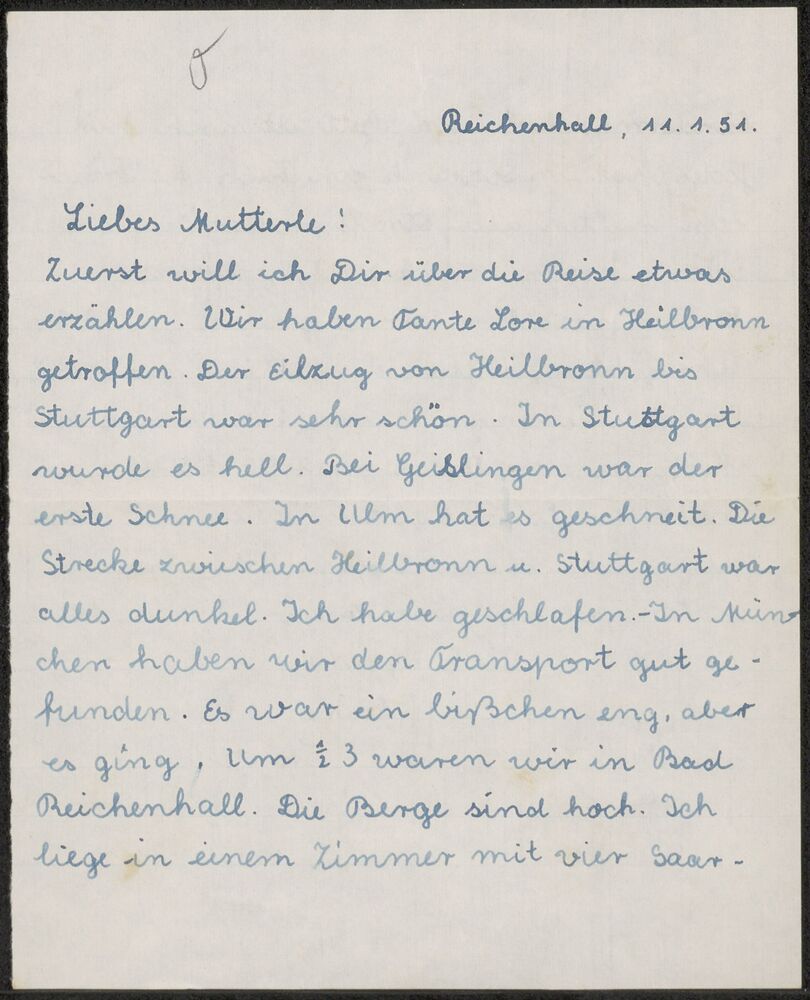 Reichenhall, 11. 1. 51.
Liebes Mutterle!
Zuerst will ich Dir über die Reise etwas
erzählen. Wir haben Tante Lore in Heilbronn
getroffen. Der Eilzug von Heilbronn bis
Stuttgart war sehr schön. In Stuttgart
wurde es hell. Bei Geislingen war der
erste Schnee. In Ulm hat es geschneit. Die
Strecke zwischen Heilbronn u. Stuttgart war
alles dunkel. Ich habe geschlafen.-In Mün-
chen haben wir den Transport gut ge-
funden. Es war ein bißchen eng, aber
es ging. Um ½ 3 waren wir in Bad
Reichenhall. Die Berge sind hoch. Ich
liege in einem Zimmer mit vier Saar-